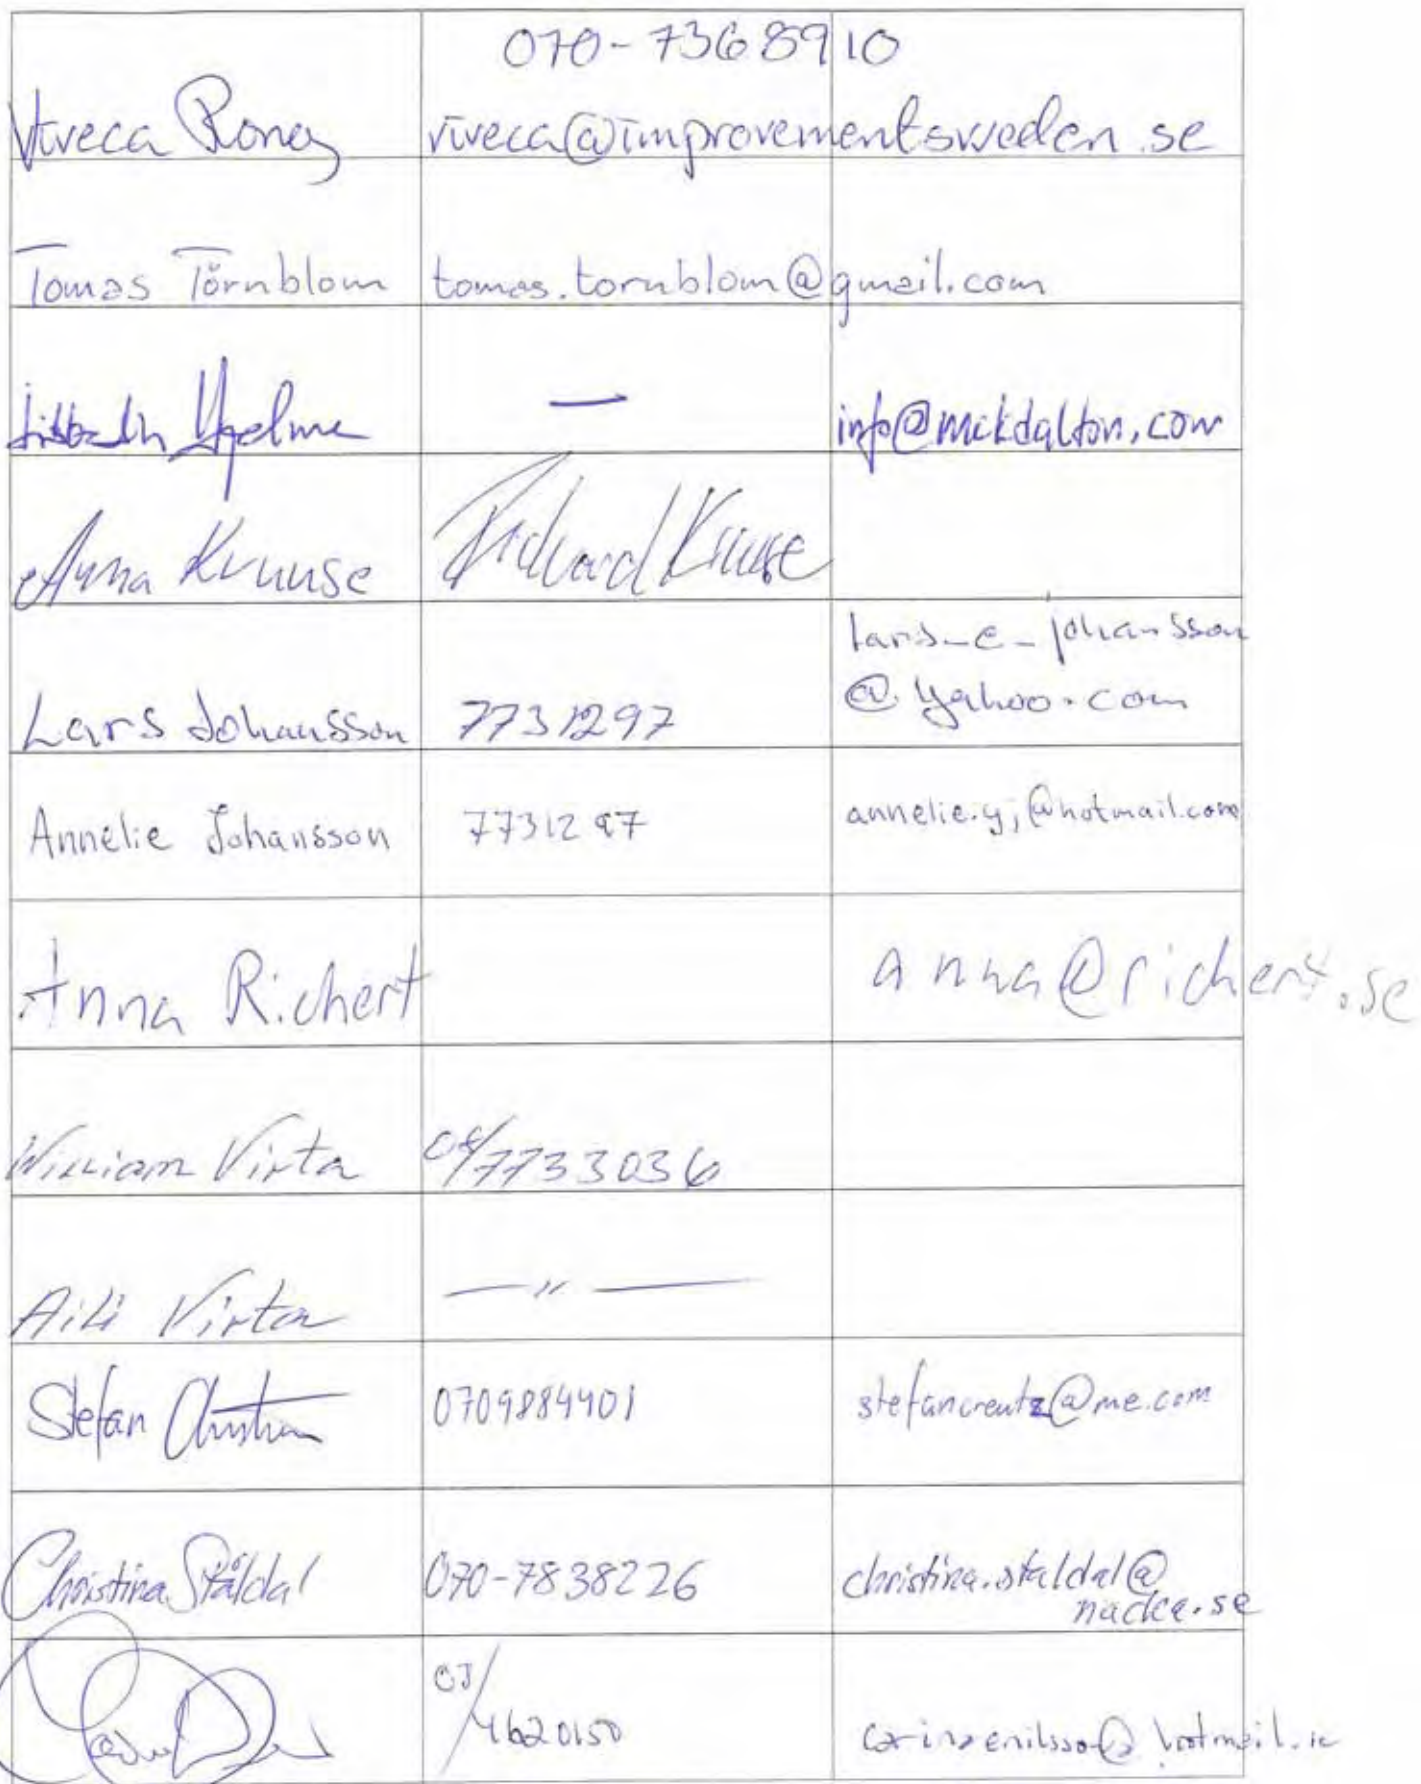 070-7368910
Viveca Roney viveca@improvementsweden.se
Tomas Törnblom tomas.tornblom@gmail.com
Lisbeth Hjelme — info@mickdalton.com
Anna Kruuse Richard Kruuse
Lars Johansson 7731297 lars_e_johansson
@yahoo.com
Annelie Johansson 7731297 annelie.yj@hotmail.com
Anna Richert anna@richert.se
William Virta 08/7733036
Aili Virta — " —
Stefan 0709884401 stefancreutz@me.com
Christina Ståldal 070-7838226 christina.staldal@
nacka.se
4620150